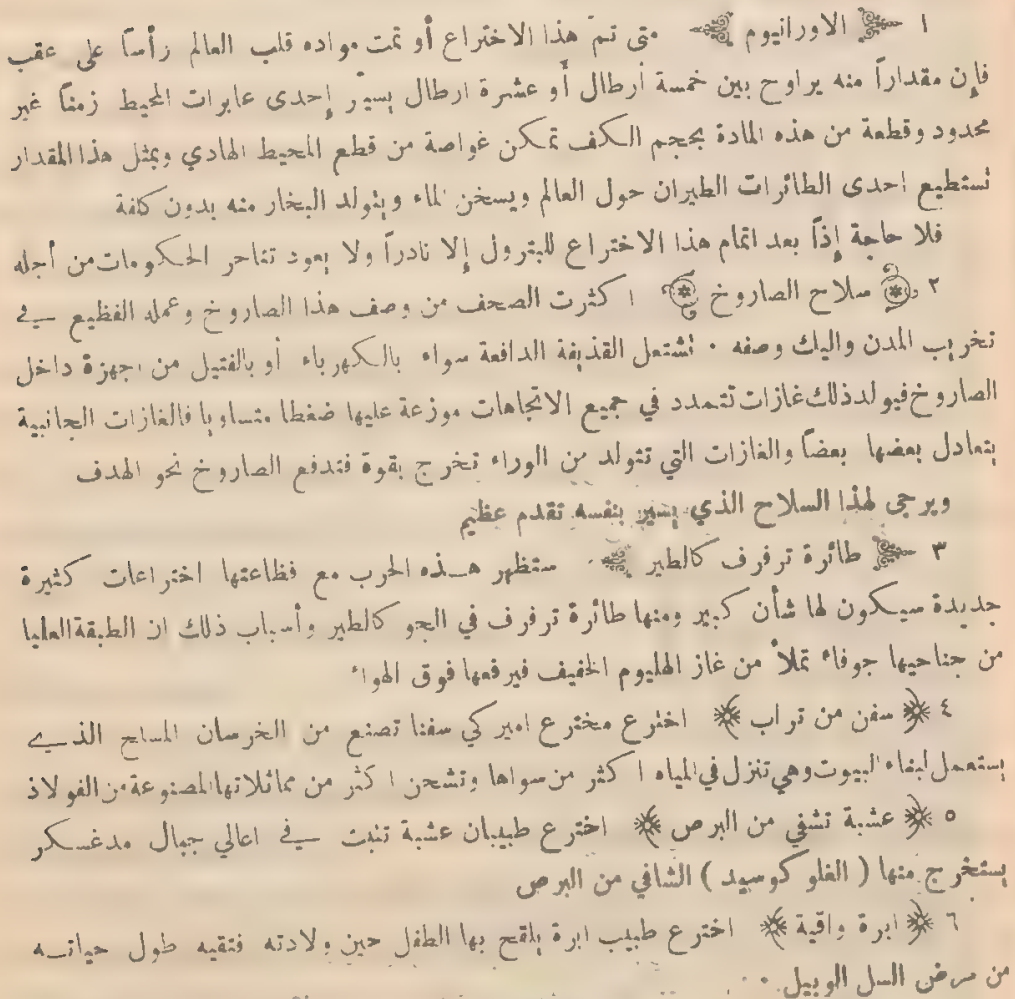 ١ الاورانيوم متى تمّ هذا الاختراع أو تمت مواده قلب العالم رأساً على عقب
فإن مقداراً منه يراوح بين خمسة أرطال أو عشرة ارطال يسير إحدى عابرات المحيط زمناً غير
محدود وقطعة من هذه المادة بحجم الكف تمكن غواصة من قطع المحيط الهادي وبمثل هذا المقدار
تستطيع احدى الطائرات الطيران حول العالم ويسخن الماء ويتولد البخار منه بدون كلفة
فلا حاجة إذاً بعد اتمام هذا الاختراع للبترول إلا نادراً ولا يعود تناحر الحكومات من أجله
٢ سلاح الصاروخ اكثرت الصحف من وصف هذا الصاروخ وعمله الفظيع في
تخريب المدن واليك وصفه . تشتعل القذيفة الدافعة سواء بالكهرباء أو بالفتيل من اجهزة داخل
الصاروخ فيولد ذلك غازات تتمدد في جميع الاتجاهات موزعة عليها ضغطا متساويا فالغازات الجانبية
يتعادل بعضها بعضاً والغازات التي تتولد من الوراء تخرج بقوة فتدفع الصاروخ نحو الهدف
ويرجى لهذا السلاح الذي يسير بنفسه تقدم عظيم
٣ طائرة ترفرف كالطير ستظهر هذه الحرب مع فظاعتها اختراعات كثيرة
جديدة سيكون لها شأن كبير ومنها طائرة ترفرف في الجو كالطير وأسباب ذلك ان الطبقة العليا
من جناحيها جوفاء تملأ من غاز الهليوم الخفيف فيرفعها فوق الهواء
٤ سفن من تراب اخترع مخترع اميركي سفنا تصنع من الخرسان المسلح الذي
يستعمل لبناء البيوت وهي تنزل في المياه اكثر من سواها وتشحن اكثر من مماثلاتها المصنوعة من الفولاذ
٥ عشبة تشفي من البرص اخترع طبيبان عشبة تنبت في اعالي جبال مدغسكر
يستخرج منها ( الغلوكوسيد ) الشافي من البرص
٦ ابرة واقية اخترع طبيب ابرة يلقح بها الطفل حين ولادته فتقيه طول حياته
من مرض السل الوبيل .